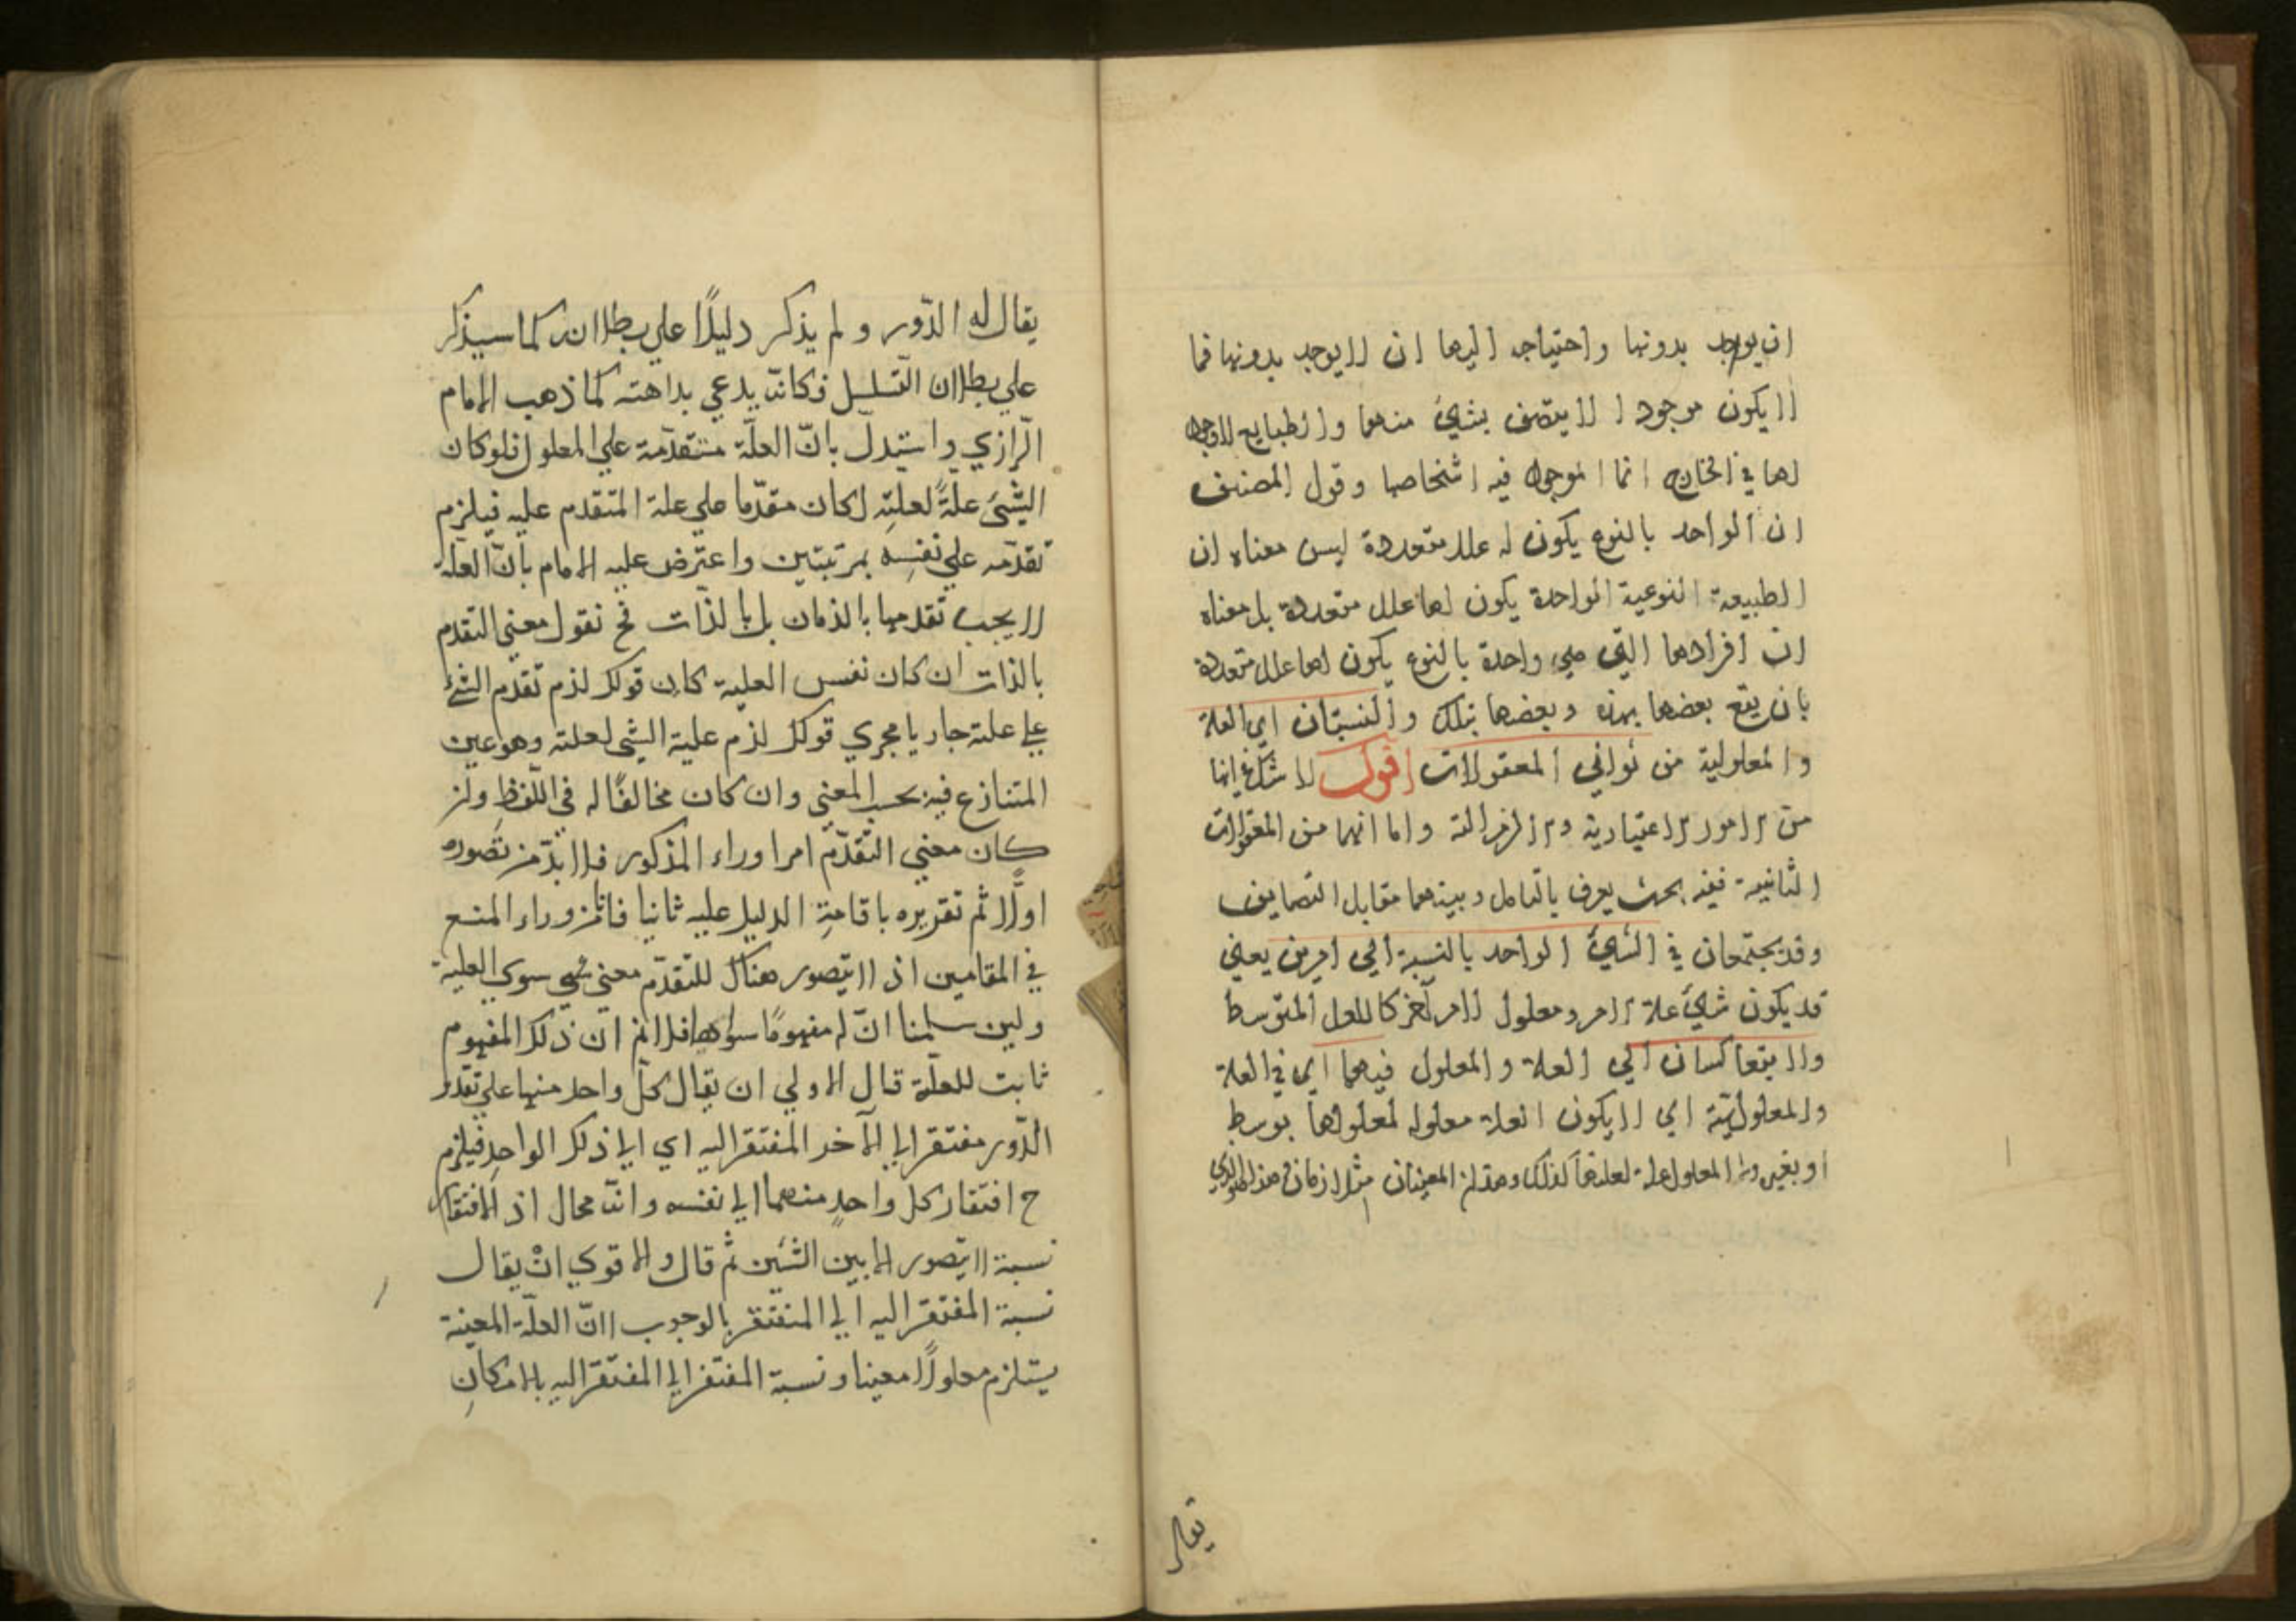 ان يوجد بدونها واحتياجه اليها ان لا يوجد بدونها فما
لا يكون موجودا لا يتصف بشيء منهما والطبايع لا وجود
لها في الخارج انما الموجود فيه اشخاصها وقول المصنف
ان الواحد بالنوع يكون له علل متعددة ليس معناه ان
الطبيعة النوعية الواحدة يكون لها علل متعددة بل معناه
ان افرادها التي هي واحدة بالنوع يكون لها علل متعددة
بان يقع بعضها بهذه وبعضها بتلك والنسبتان اي العلة
والمعلولية من ثواني المعقولات اقول لا شك في انها
من الامور الاعتبارية واما انهما من المعقولات
الثانية ففيه بحث يعرف بالتامل وبينهما مقابل التضايف
وقد يجتمعان في الشيء الواحد بالنسبة الي امرين يعني
قد يكون شيء علة لامر ومعلول لامر آخر كالعلل المتوسط
ولا يتعاكسان الي العلة والمعلول فيهما اي في العلة
والمعلولية اي لا يكون العلة معلولة لمعلولها بوسط
او بغير ولا المعلول علة لعلتها كذلك وهذان المعنيان متلازمان وهذا هو الذي
يقال
يقال له الدّور ولم يذكر دليلًا علي بطلانه كما سيذكر
علي بطلان التسلسل فكانّه يدعي بداهته كما ذهب الامام
الرازي واستدل بانّ العلّة متقدّمة علي المعلول فلو كان
الشيئ علةً لعلتِه لكان مقدّما علي علة المتقدم عليه فيلزم
تقدّمه علي نفسِه بمرتبتين واعترض عليه الامام بانّ العلة
لا يجب تقدمها بالزمان بل بالذات فح نقول معني التقدم
بالذات ان كان نفس العلية كان قولك لزم تقدم الشئ
علي علته جاريا مجري قولك لزم علية الشي لعلته وهو عين
المتنازع فيه بحسب المعني وان كان مخالفًا له في اللفظ وان
كان معني التقدّم امرا وراء المذكور فلا بدّ من تصوره
اوّلا ثم تقريره باقامةِ الدليل عليه ثانيا فانّا من وراء المنع
في المقامين اذ لا يتصور هناك للتقدّم معني سوي العلية
ولين سلمنا انّ له مفهومًا سواها فلا نم ان ذلك المفهوم
ثابت للعلّة قال الاولي ان يقال كلّ واحد منهما علي تقدر
الدّور مفتقر الي الآخر المفتقر اليه اي الي ذلك الواحدِ فيلزم
ح افتقار كل واحدٍ منهما الي نفسه وانّه محال اذ الافتقار
نسبة لا يتصور الا بين الشيئين ثم قال والاقوي انْ يقال
نسبة المفتقر اليه الي المفتقر بالوجوب لانّ العلّة المعينة
يستلزم معلولًا معينا ونسبة المفتقر الي المفتقر اليه بالامكانِ